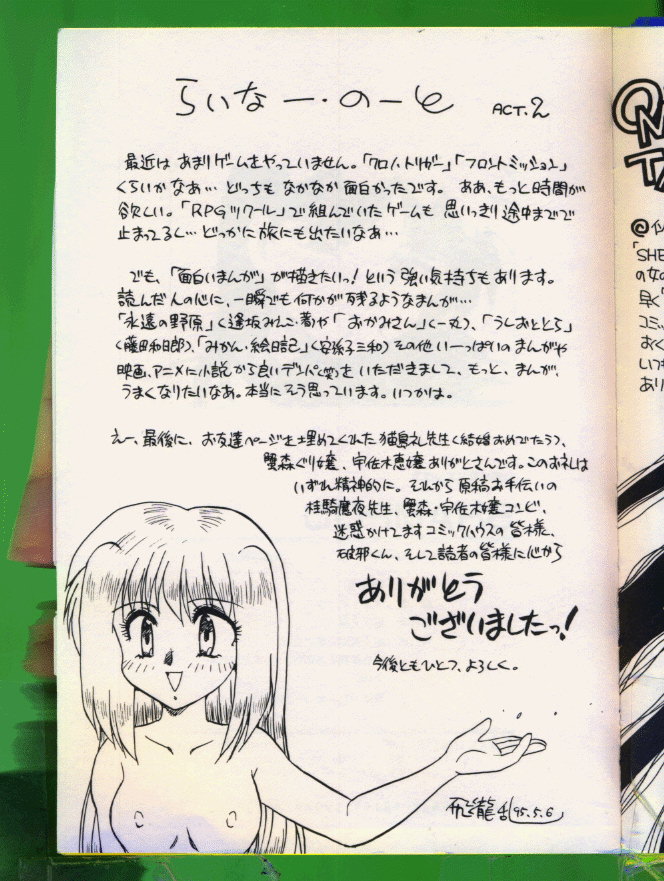 らいなー・のーと ACT.2
最近は あまりゲームをやっていません。「クロノ・トリガー」「フロントミッション」
くらいかなあ… どっちも なかなか 面白かったです。 ああ、もっと時間が
欲しい。「RPGツクール」で組んでいたゲームも 思いっきり途中までで
止まってるし… どっかに旅にも出たいなあ…
でも、「面白いまんが」が描きたいっ! という強い気持ちもあります。
読んだ人の心に、一瞬でも何かが残るようなまんが…
「永遠の野原」〈逢坂みえこ・著〉や「おかみさん」〈一丸〉、「うしおととら」
〈藤田和日郎〉、「みかん・絵日記」〈安孫子三和〉その他い〜っぱいのまんがや
映画、アニメに小説から良いデンパ〈笑〉を いただきまして、もっと、まんが、
うまくなりたいなあ。本当にそう思っています。いつかは。
えー、最後に、お友達ページを埋めてくれた 猫島礼先生〈結婚おめでたう〉、
蟹森ぐり嬢、宇佐木恵嬢ありがとさんです。このお礼は
いずれ精神的に。それから原稿お手伝いの
桂騎魔夜先生、蟹森・宇佐木嬢コンビ、
迷惑かけてますコミックハウスの皆様、
破邪くん、そして読者の皆様に心から
ありがとう
ございましたっ!
今後ともひとつ、よろしく。
飛龍乱 '95.5.6
「SHE
の女の
早く
コミッ
おく
いつも
あり